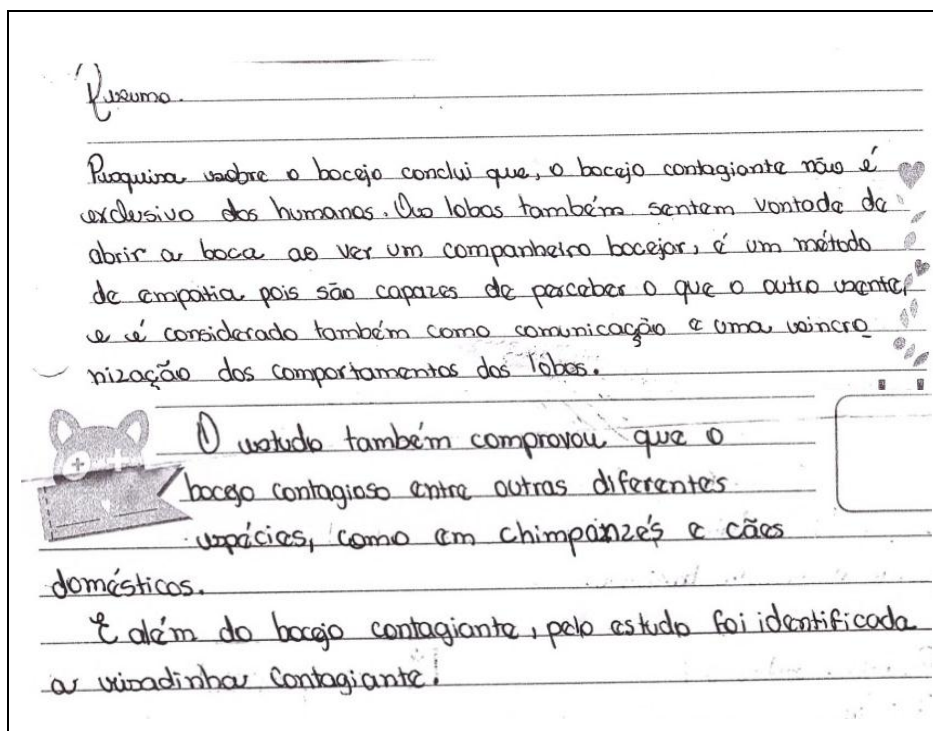 Resumo.
Pesquisa sobre o bocejo conclui que, o bocejo contagiante não é
exclusivo dos humanos. Os lobos também sentem vontade de
abrir a boca ao ver um companheiro bocejar, é um método
de empatia pois são capazes de perceber o que o outro sente,
e é considerado também como comunicação e uma sincro
nização dos comportamentos dos lobos.
O estudo também comprovou que o
bocejo contagioso entre outras diferentes
espécies, como em chimpanzés e cães
domésticos.
E além do bocejo contagiante, pelo estudo foi identificada
a risadinha contagiante.